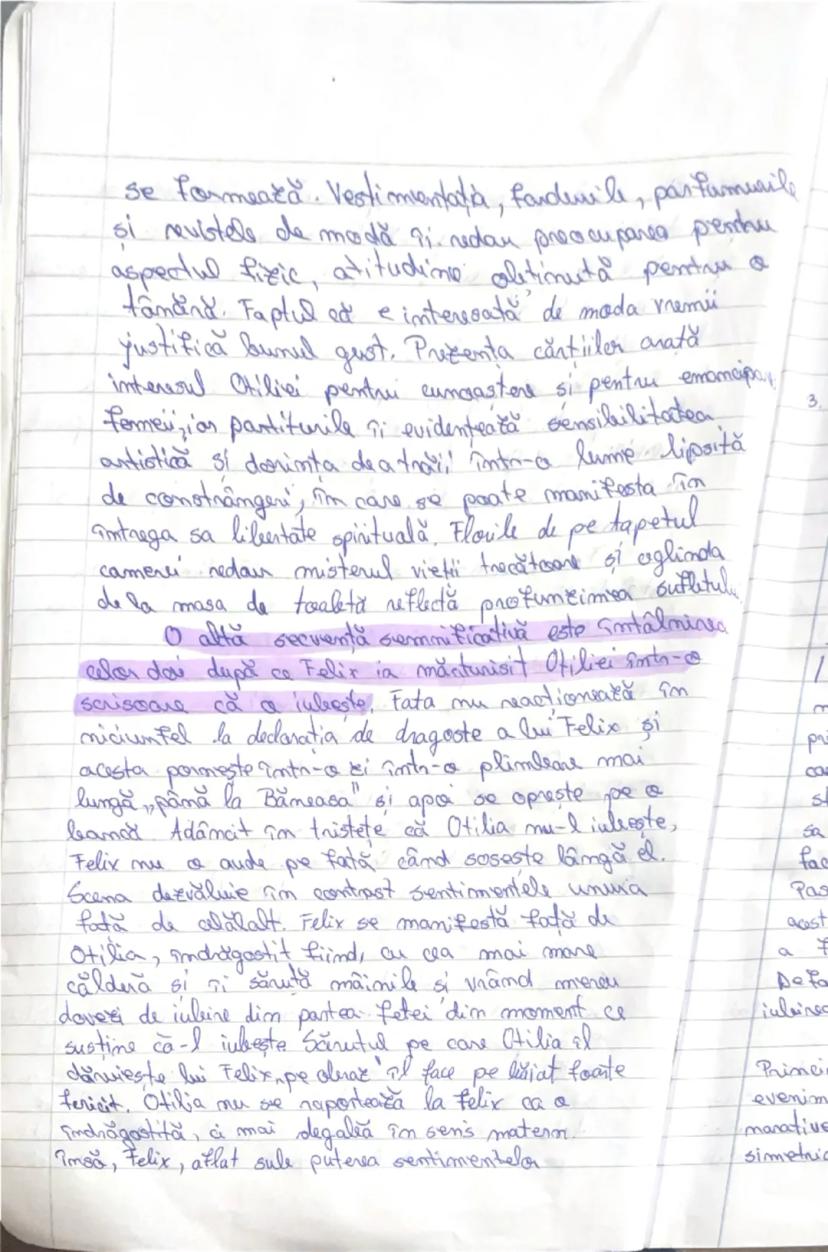 se formează. Vestimentația, fardurile, parfumurile
și revistele de modă îi redau preocuparea pentru
aspectul fizic, atitudine obținută pentru o
tânără. Faptul că e interesată de moda vremii
justifică bunul gust. Prezența cărților arată
interesul Otiliei pentru cunoaștere și pentru
femeii, iar partiturile îi evidențează sensibilitatea
artistică și dorința de a trăi într-o lume lipsită
de constrângeri, în care se poate manifesta în
întrega sa libertate spirituală. Florile de pe tapetul
camerei redau misterul vieții trecătoare și oglinda
de la masa de toaletă reflectă profunzimea sufletului
O altă secvență semnificativă este întâlnirea
celor doi după ce Felix ia mărturisit Otiliei într-o
scrisoare că o iubește. Fata nu reacționează în
niciunfel la declarația de dragoste a lui Felix și
acesta pornește într-o zi într-o plimbare mai
lungă „până la Băneasa" și apoi se oprește pe o
bancă Adâncit în tristețe că Otilia nu-l iubește,
Felix nu o aude pe fată când sosește lângă el.
Scena dezvăluie în contrast sentimentele unuia
față de celălalt. Felix se manifestă față de
Otilia, îndrăgostit fiind, cu cea mai mare
căldură și îi sărută mâinile și vrând mereu
dovezi de iubire din partea fetei din moment ce
susține că-l iubește Sărutul pe care Otilia îl
dăruiește lui Felix „pe obraz" îl face pe băiat foarte
fericit. Otilia nu se raportează la Felix ca o
îndrăgostită, ci mai degabă în sens matern.
însă, Felix, aflat sub puterea sentimentelor
3.